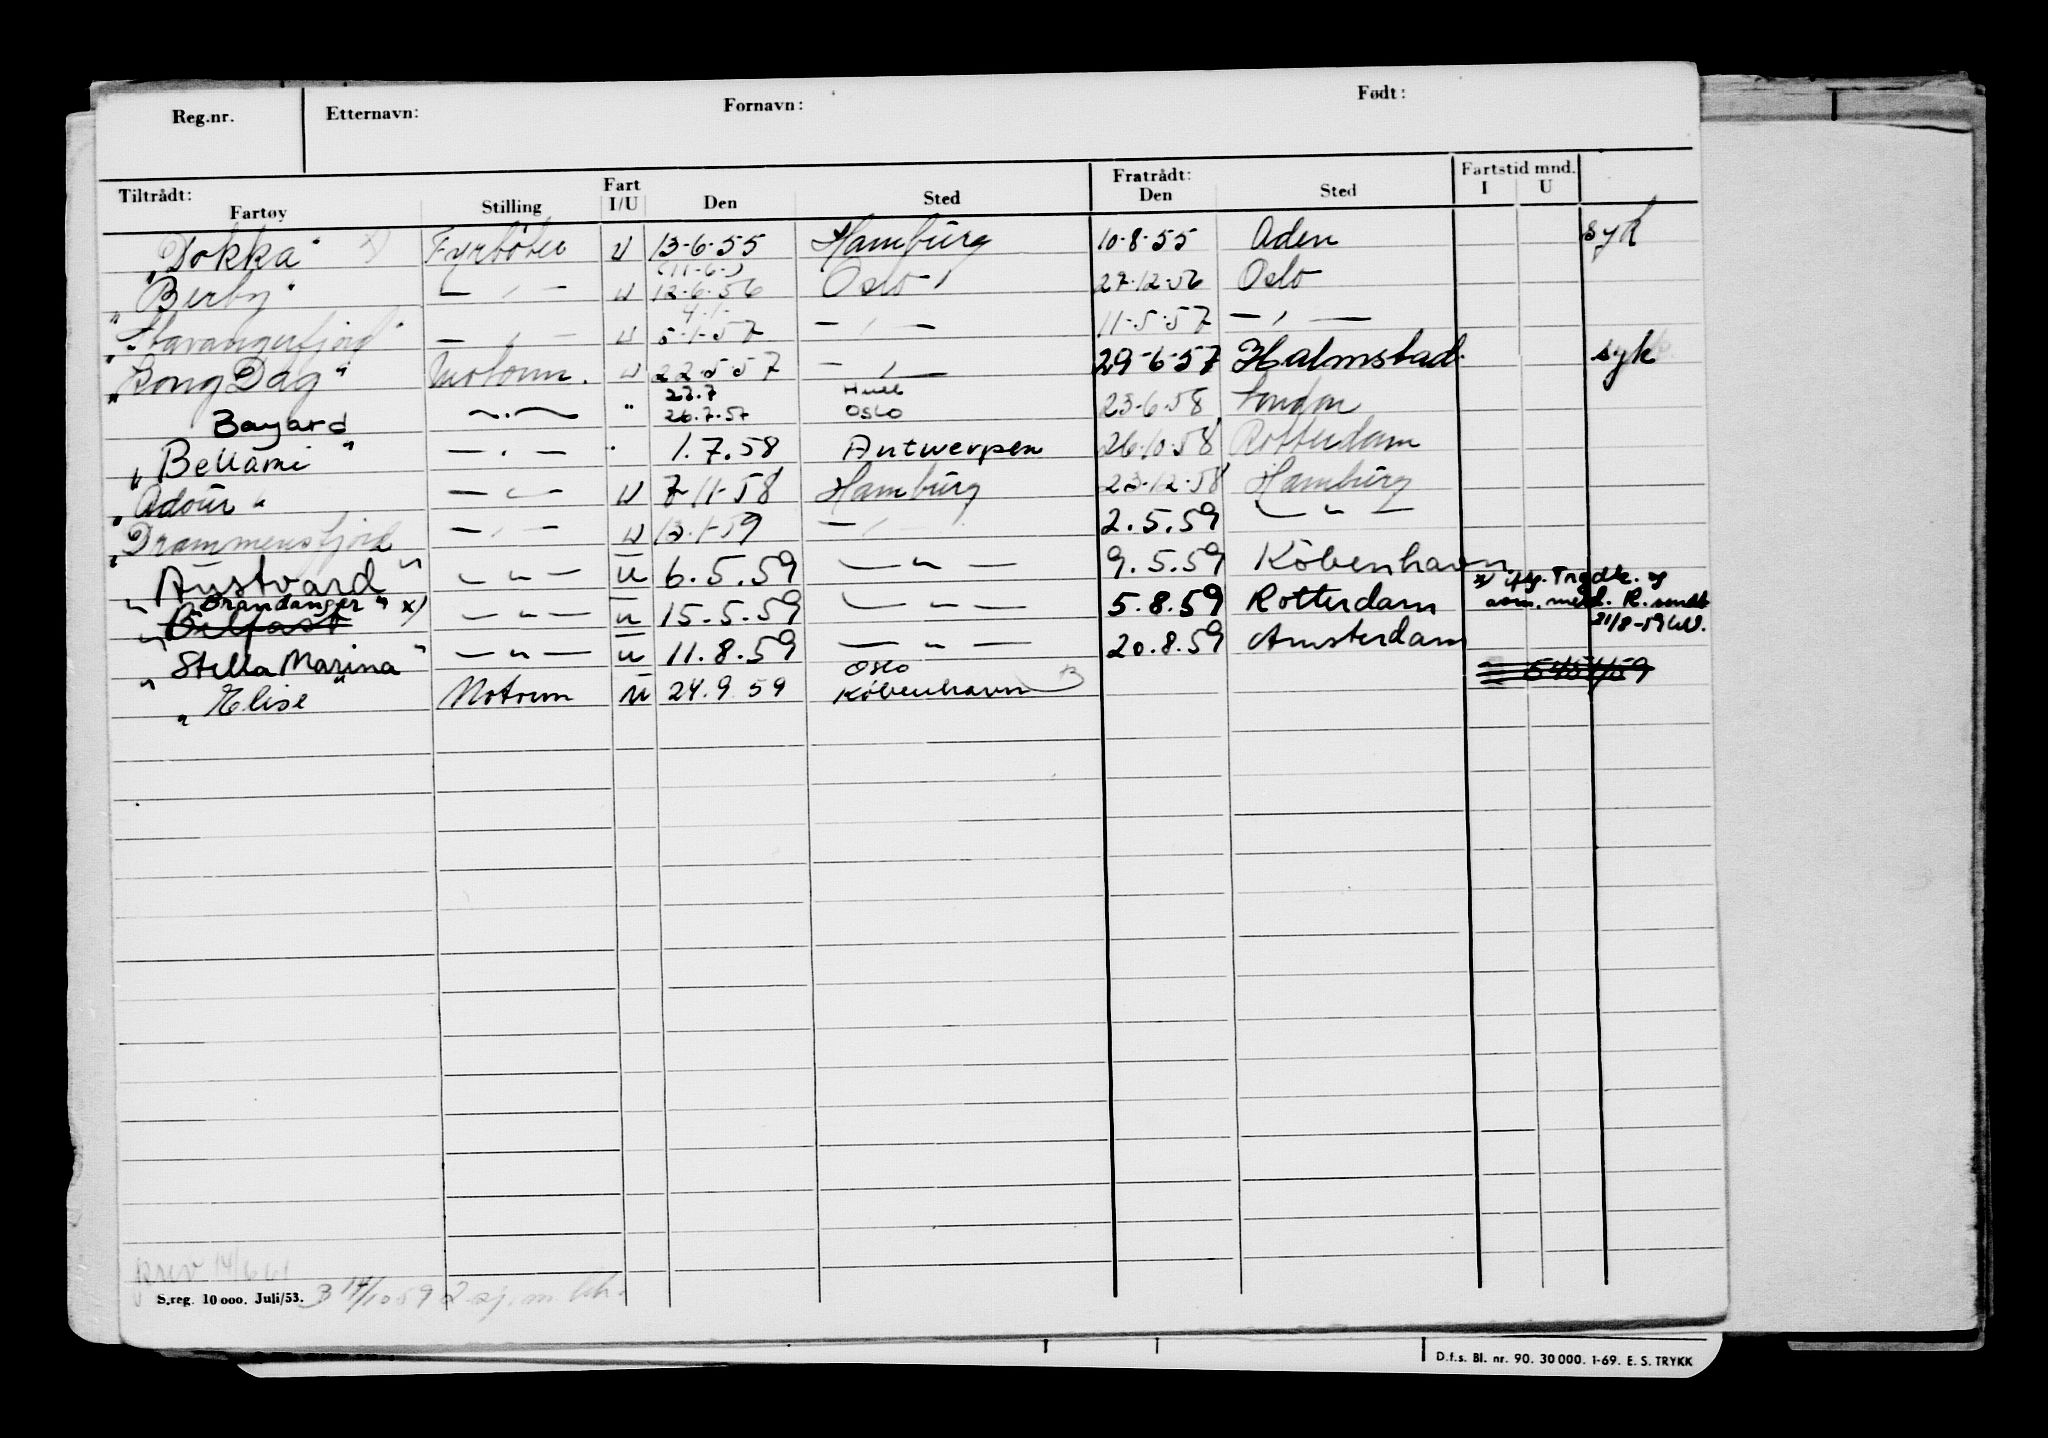 Reg.nr. Etternavn: Fornavn: Født:
Tiltrådt: Fart Fratrådt: Fartstid mnd.
Fartøy Stilling I/U Den Sted Den Sted I U
"Dokka" x) Fyrbøter U 13-6-55 Hamburg 10-8-55 Aden syk
(11-6-)
"Berby" — " — U 12-6-56 Oslo 27-12-56 Oslo
4-1-
"Stavangerfjord" — " — U 5-1-57 — " — 11-5-57 — " —
"Bong Dag" Motorm. U 22-5-57 — " — 29-6-57 Halmstad syk
23.7 Hull
Bayard — " — " 26.7.57 Oslo 23-6-58 London
"Bellami" — " — " 1.7.58 Antwerpen 26-10-58 Rotterdam
"Adour" — " — U 7-11-58 Hamburg 23-12-58 Hamburg
"Drammensfjord — " — U 13-1-59 — " — 2.5.59 — " —
"Austvard" — " — U 6.5.59 — " — 9.5.59 København
"Brandanger" x) — " — U 15.5.59 — " — 5.8.59 Rotterdam
Belfast
x) og
21/8-59
"Stella Marina" — " — U 11.8.59 — " — 20.8.59 Amsterdam
Oslo
"Elise" Motorm U 24.9.59 København
brev 14/6 61
S.reg. 10 000. Juli/53. B 14/10 59 2 sj.m.
D.f.s. Bl. nr. 90. 30 000. 1-69. E. S. TRYKK